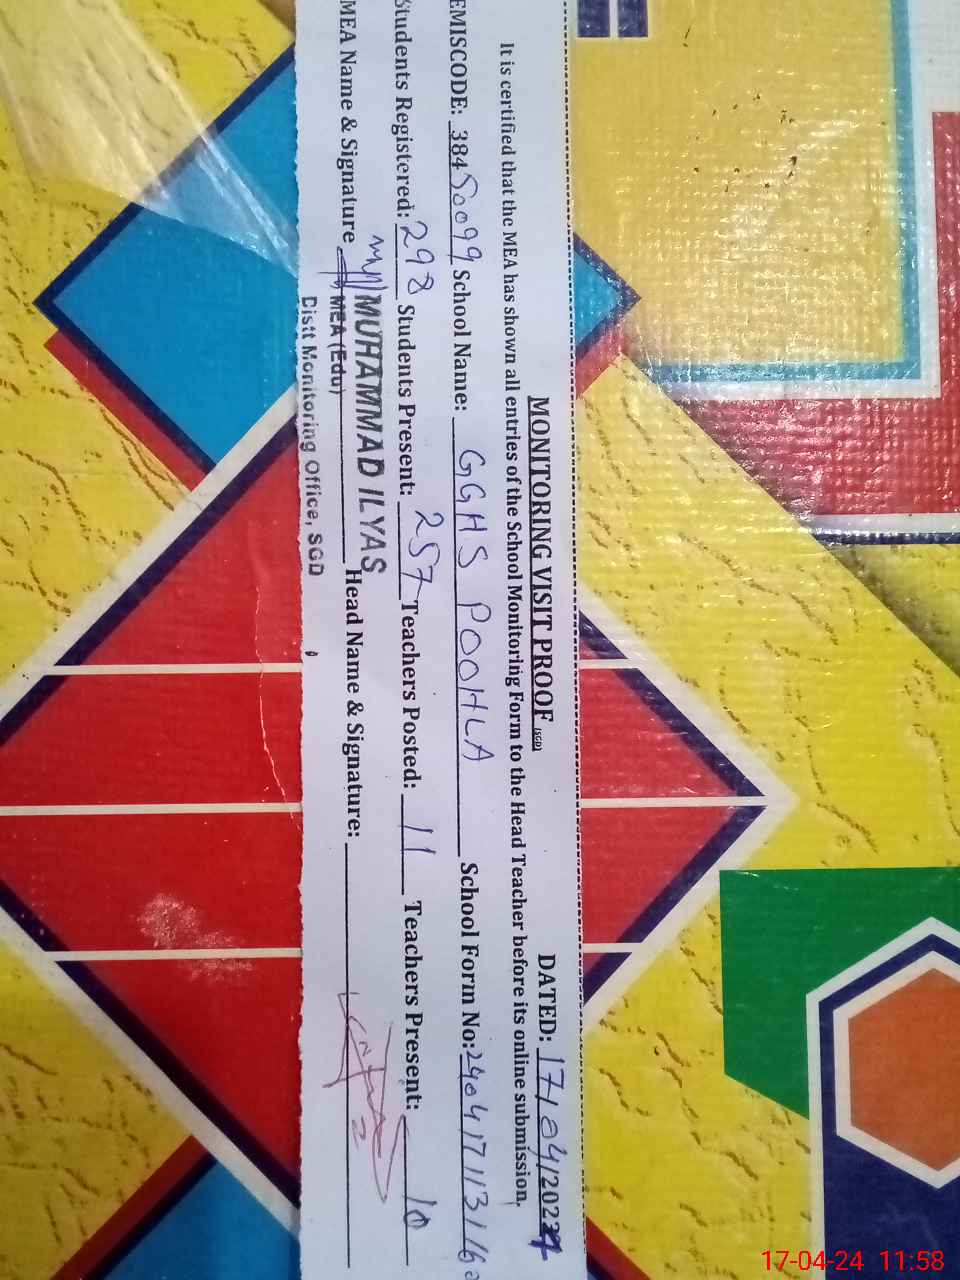 MONITORING VISIT PROOF (SGD) DATED: 17/04/2024
It is certified that the MEA has shown all entries of the School Monitoring Form to the Head Teacher before its online submission.
EMISCODE: 38450099 School Name: GGHS POOHLA School Form No: 240417113116
Students Registered: 298 Students Present: 257 Teachers Posted: 11 Teachers Present: 10
MEA Name & Signature MUHAMMAD ILYAS Head Name & Signature:
MEA (Edu)
Distt Monitoring Office, SGD
17-04-24 11:58